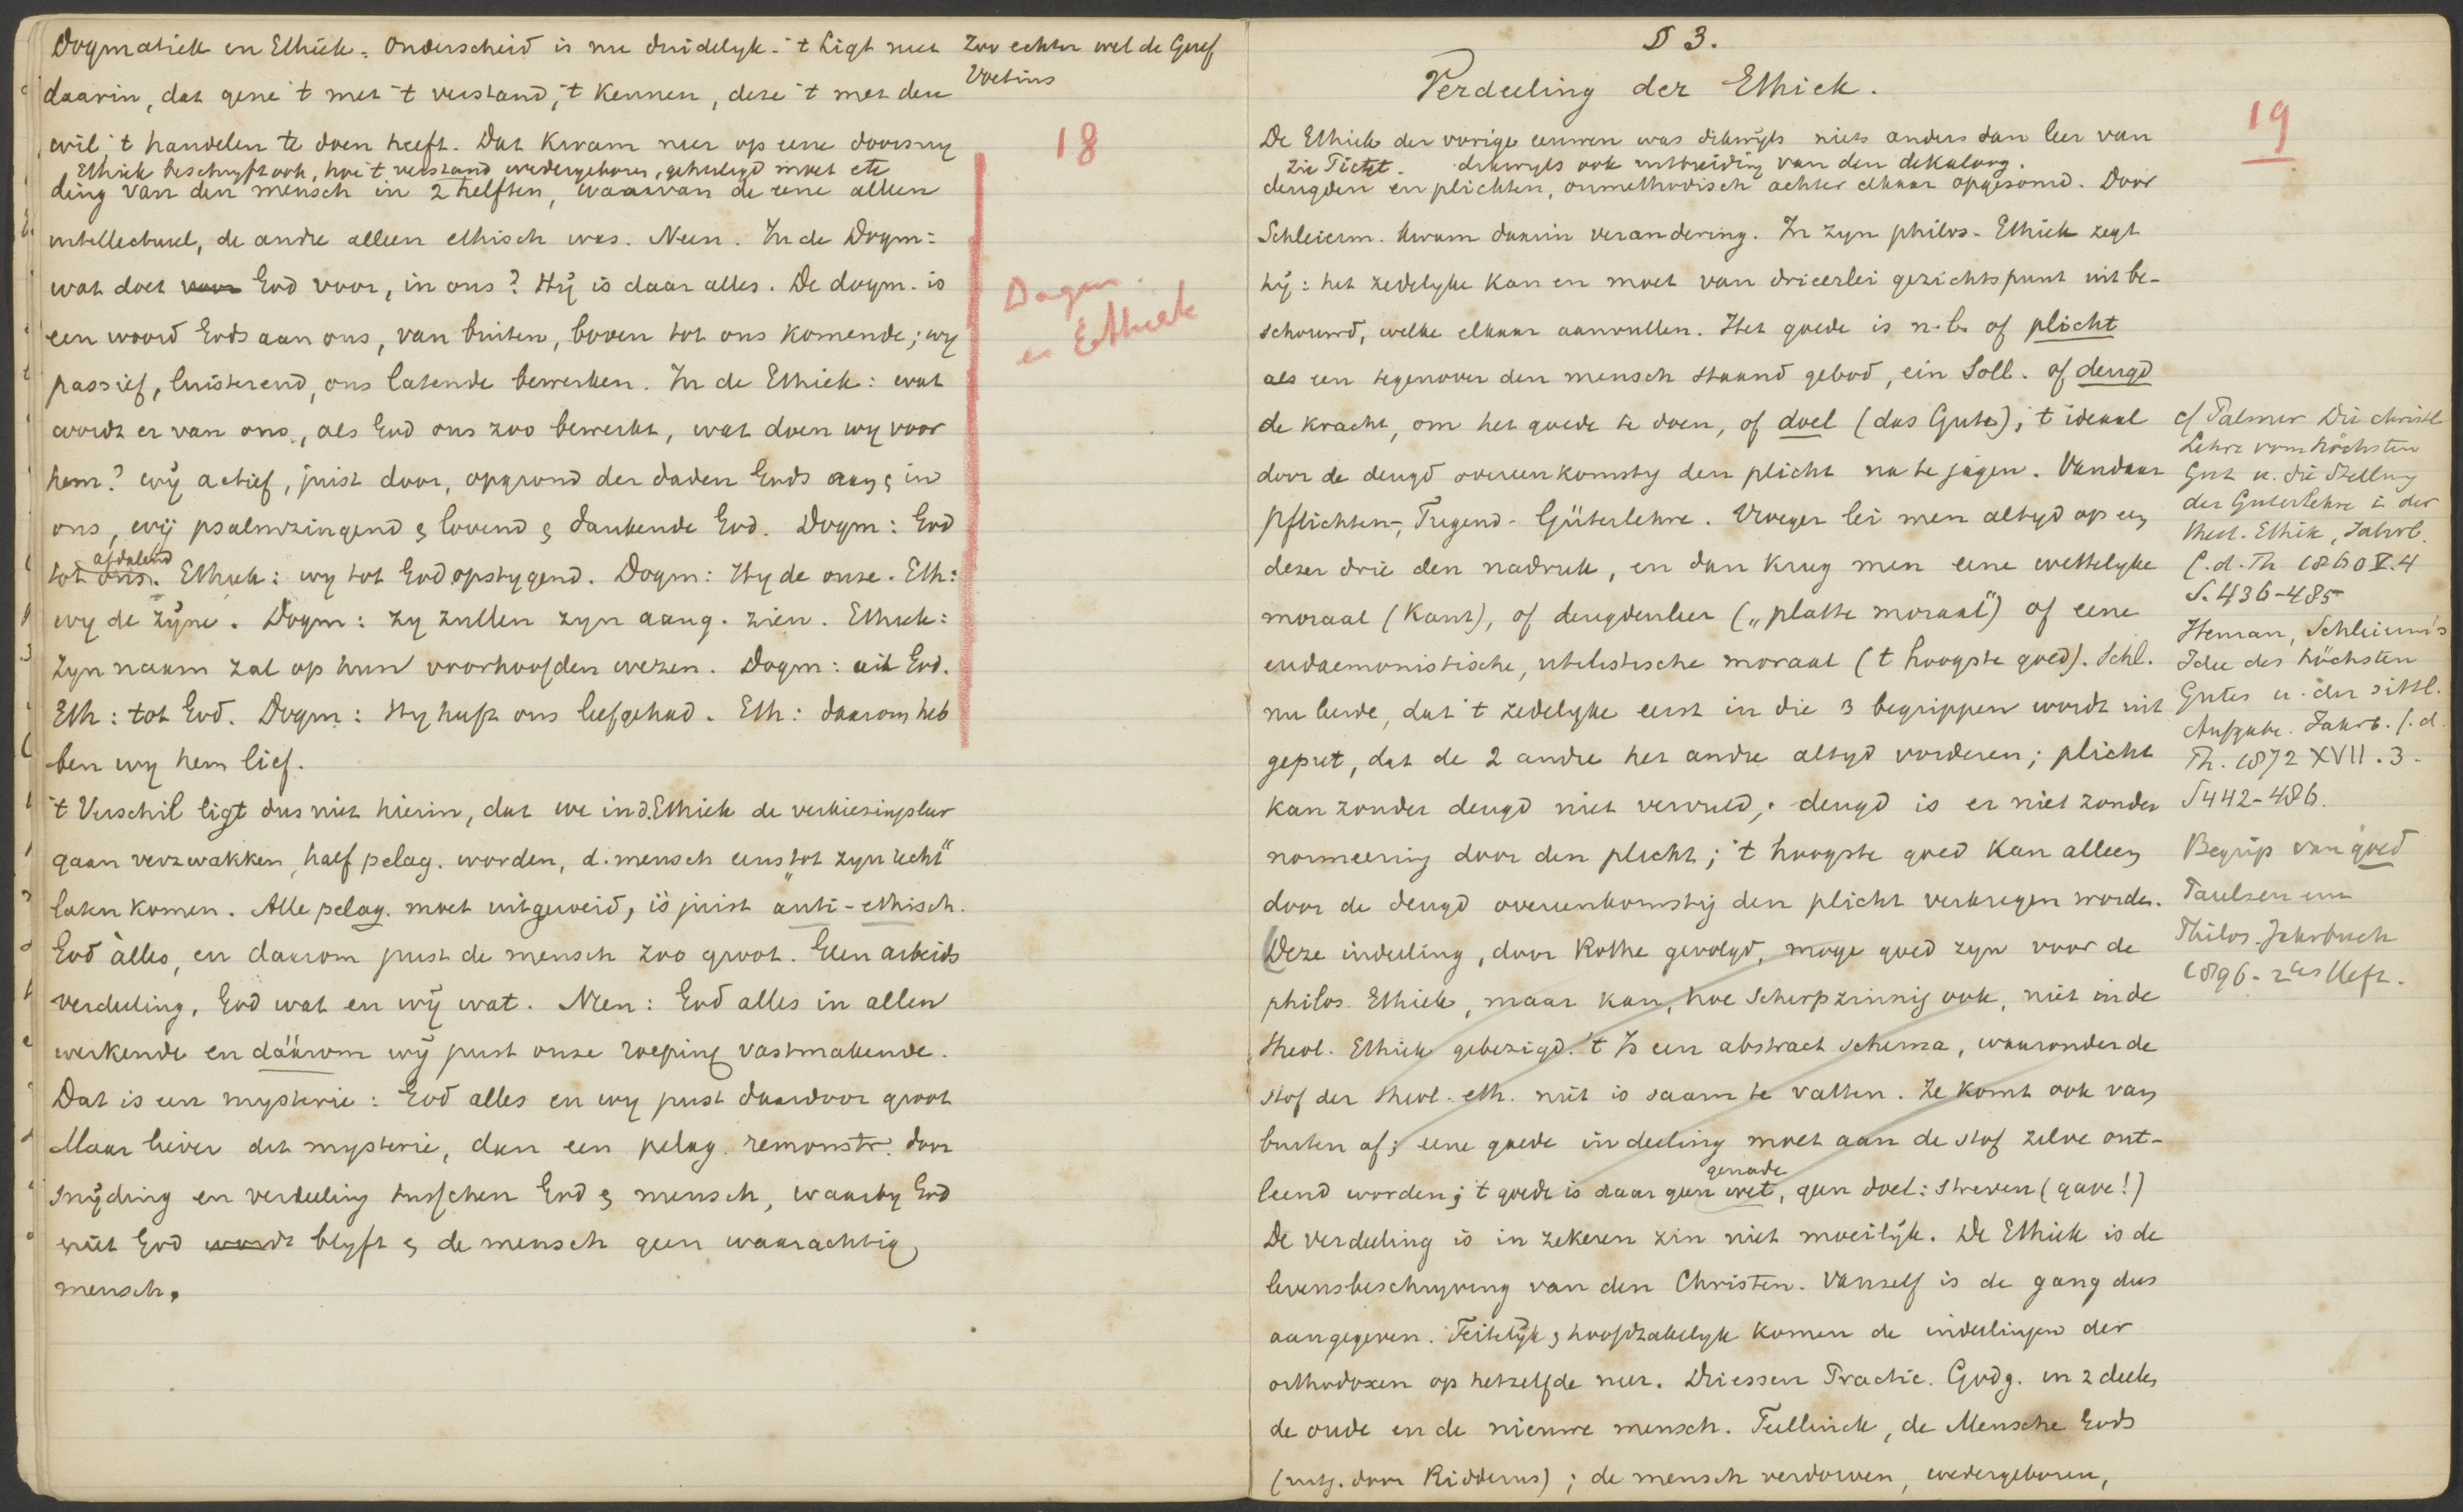 Dogmatiek en Ethiek. Onderscheid is nu duidelyk. 't Ligt niet
daarin, dat gene 't met 't verstand, 't kennen, deze 't met den
wil 't handelen te doen heeft. Dat kwam neer op eene doorsny
Ethiek beschryft ook, hoe 't verstand wedergeboren, geheiligd moet etc
ding van den mensch in 2 helften, waarvan de eene alleen
intellectueel, de andre alleen ethisch was. Neen. In de Dogm:
wat doet voor God voor, in ons? Hy is daar alles. De dogm. is
een woord Gods aan ons, van buiten, boven tot ons komende; wy
passief, luisterend, ons latende bewerken. In de Ethiek: wat
wordt er van ons, als God ons zoo bewerkt, wat doen wy voor
hem? wy actief, juist door, op grond der daden Gods aan & in
ons, wy psalmzingend & lovend & dankende God. Dogm: God
afdalend
tot ons. Ethiek: wy tot God opstygend. Dogm: Hy de onze. Eth:
wy de zyne. Dogm: zy zullen zyn aang. zien. Ethiek:
Zyn naam zal op hun voorhoofden wezen. Dogm: uit God.
Eth: tot God. Dogm: Hy heeft ons liefgehad. Eth: daarom heb
ben wy hem lief.
't Verschil ligt dus niet hierin, dat we in d. Ethiek de verkiezingsleer
gaan verzwakken, half pelag. worden, d. mensch eens „tot zyn recht"
laten komen. Alle pelag. moet uitgeweid, is juist anti-ethisch.
God alles, en daarom juist de mensch zoo groot. Geen arbeids
verdeeling, God wat en wy wat. Neen: God alles in allen
werkende en dáárom wy juist onze roeping vastmakende.
Dat is een mysterie: God alles en wy juist daardoor groot
Maar liever dit mysterie, dan een pelag. remonstr. door
snyding en verdeeling tusschen God & mensch, waarby God
niet God wordt blyft & de mensch geen waarachtig
mensch.
Zoo echter wel de Geref
Voetius
18
Dogm.
en Ethiek
§ 3.
Verdeeling der Ethiek.
19
De Ethiek der vorige eeuwen was dikwyls niets anders dan leer van
Zie Pictet. dikwyls ook uitbreiding van den dekaloog.
deugden en plichten, onmethodisch achter elkaar opgesomd. Door
Schleierm. kwam daarin verandering. In zyn philos. Ethiek zegt
hy: het zedelyke kan en moet van drieerlei gezichtspunt uit be-
schouwd, welke elkaar aanvullen. Het goede is n.l. of plicht
als een tegenover den mensch staand gebod, ein Soll. of deugd
de kracht, om het goede te doen, of doel (das Gute), 't ideaal
door de deugd overeenkomstig den plicht na te jagen. Vandaar
Pflichten-, Tugend- Güterlehre. Vroeger lei men altyd op een
dezer drie den nadruk, en dan kreeg men eene wettelyke
moraal (Kant), of deugdenleer („platte moraal") of eene
eudaemonistische, utilistische moraal ('t hoogste goed). Schl.
nu leerde, dat 't zedelyke eerst in die 3 begrippen wordt uit
geput, dat de 2 andre het andre altyd vorderen; plicht
kan zonder deugd niet vervuld; deugd is er niet zonder
normeering door den plicht; 't hoogste goed kan alleen
door de deugd overeenkomstig den plicht verkregen worden.
(Deze indeeling, door Rothe gevolgd, moge goed zyn voor de
philos. Ethiek, maar kan, hoe scherpzinnig ook, niet in de
theol. Ethiek gebezigd. 't Is een abstract schema, waaronder de
stof der theol. eth. niet is saam te vatten. Ze komt ook van
buiten af; eene goede indeeling moet aan de stof zelve ont-
genade
leend worden; 't goede is daar geen wet, geen doel: streven (gave!)
De verdeeling is in zekeren zin niet moeilyk. De Ethiek is de
levensbeschryving van den Christen. Vanself is de gang dus
aangegeven. Feitelyk & hoofdzakelyk komen de indeelingen der
orthodoxen op hetzelfde neer. Driessen Practic. Godg. in 2 deelen
de oude en de nieuwe mensch. Teellinck, de Mensche Gods
(uitg. door Ridderus); de mensch verdorven, wedergeboren,
cf Palmer Die christl
Lehre vom höchsten
Gut u. die Stellung
der Güterlehre i. der
theol. Ethik, Jahrb.
f. d. Th 1860 V. 4
S. 436-485
Heman, Schleierm's
Idee des höchsten
Gutes u. der sittl.
Aufgabe. Jahrb. f. d.
Th. 1872 XVII. 3.
S 442-486.
Begrip van goed
Paulsen im
Philos. Jahrbuch
1896 - 2tes Heft.